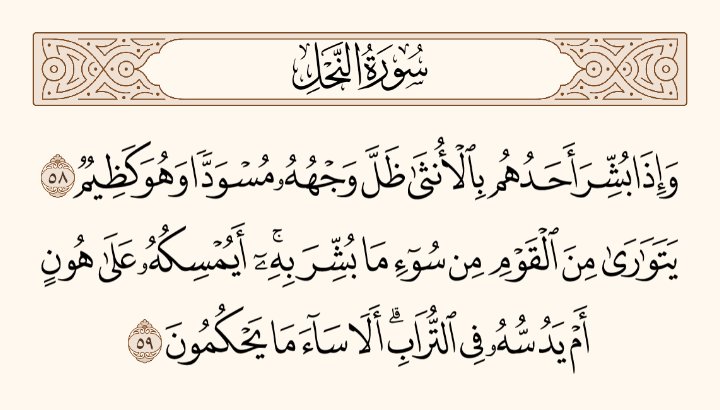 سُورَةُ النَّحْلِ
وَإِذَا بُشِّرَ أَحَدُهُم بِٱلْأُنثَىٰ ظَلَّ وَجْهُهُۥ مُسْوَدًّا وَهُوَ كَظِيمٌ ٥٨
يَتَوَٰرَىٰ مِنَ ٱلْقَوْمِ مِن سُوٓءِ مَا بُشِّرَ بِهِۦٓ ۚ أَيُمْسِكُهُۥ عَلَىٰ هُونٍ
أَمْ يَدُسُّهُۥ فِى ٱلتُّرَابِ ۗ أَلَا سَآءَ مَا يَحْكُمُونَ ٥٩